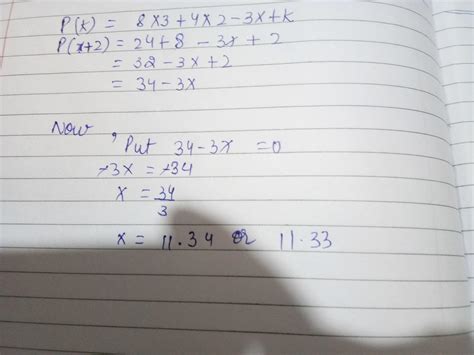 P(k) = 8x3+4x2-3x+k
P(x+2) = 24+8 -3x+2
= 32-3x+2
= 34-3x
Now, Put 34-3x =0
-3x = -34
x = 34/3
x = 11.34 or 11.33